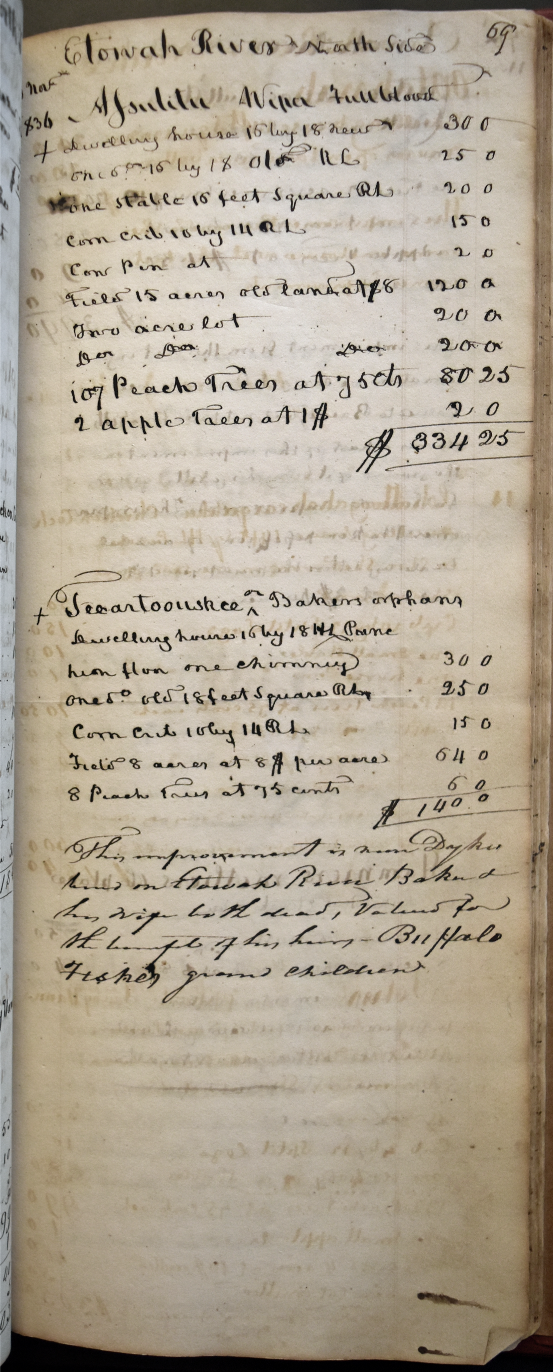 69
Etowah River North Side
Nov
836 Wife Fullblood
+ dwelling house 16 by 18 new 30 0
one do 16 by 18 old RL 25 0
one stable 16 feet Square RL 20 0
Corn Crib 10 by 14 RL 15 0
Cow Pen at 2 0
Field 15 acres old land at $8 120 0
Two acre lot 20 0
Do Do Do 20 0
107 Peach Trees at 75 cts 80 25
2 apple Trees at 1$ 2 0
$ 334 25
+ Seeartoouskee or Bakers orphans
dwelling house 16 by 18 HL Pune
hewn floor one chimney 30 0
one do old 18 feet Square RL 25 0
Corn Crib 10 by 14 RL 15 0
Field 8 acres at 8$ per acre 64 0
8 Peach Trees at 75 cents 6 0
$ 140 0
This improvement is near
on Etowah River Baker &
his wife both dead, Valued for
the benefit of his heirs - Buffalo
Fishes grand children